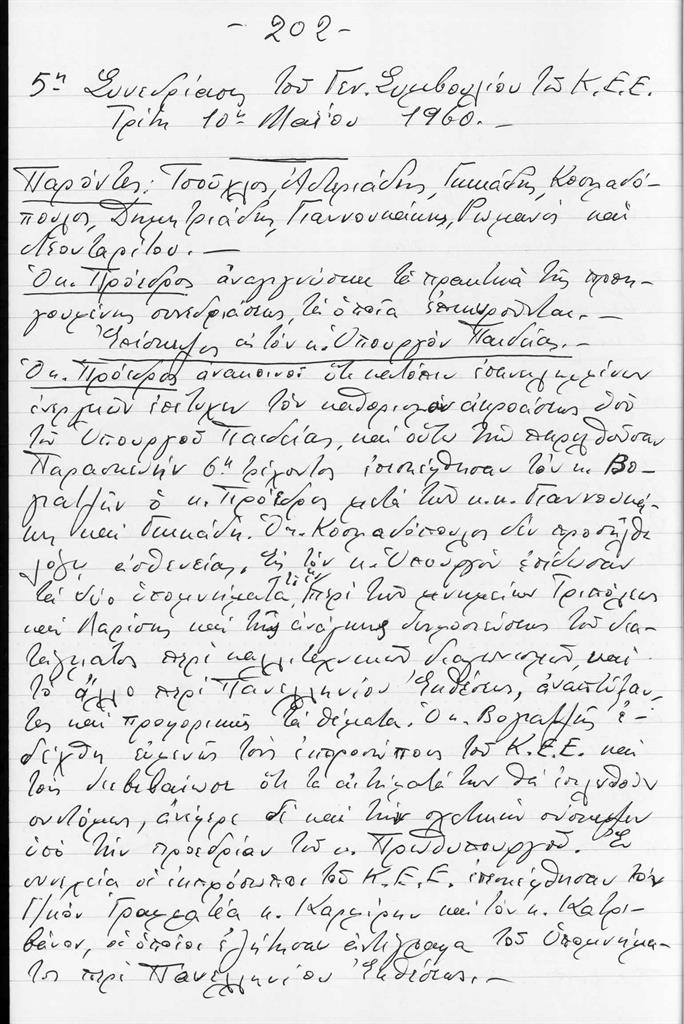 - 202 -
5η Συνεδρίασις τοῦ Γεν. Συμβουλίου τοῦ Κ.Ε.Ε.
Τρίτη 10η Μαΐου 1960. —
Παρόντες: Τσοῦχλος, Ἀστεριάδης, Γκικάδης, Κοσμαδό-
πουλος, Δημητριάδης, Γιαννουκάκης, Ρωμανός καί
Λεονταρίτου. —
Ὁ κ. Πρόεδρος ἀναγιγνώσκει τά πρακτικά τῆς προη-
γουμένης συνεδριάσεως, τά ὁποῖα ἐπικυροῦνται. —
Ἐπίσκεψις εἰς τόν κ. Ὑπουργόν Παιδείας. —
Ὁ κ. Πρόεδρος ἀνακοινοῖ ὅτι κατόπιν ἐπανειλημμένων
ἐνεργειῶν ἐπέτυχεν τόν καθορισμόν ἀκροάσεως ὑπό
τοῦ Ὑπουργοῦ Παιδείας, καί οὕτω τήν παρελθοῦσαν
Παρασκευήν 6η τρέχοντος ἐπεσκέφθησαν τόν κ. Βο-
γιατζῆν ὁ κ. Πρόεδρος μετά τῶν κ.κ. Γιαννουκά-
κη καί Γκικάδη. Ὁ κ. Κοσμαδόπουλος δέν προσῆλθε
λόγῳ ἀσθενείας. Εἰς τόν κ. Ὑπουργόν ἐπέδωσαν
τά δύο ὑπομνήματα, τό ἕν περί τῶν μνημείων Τριπόλεως
καί Λαρίσης καί τῆς ἀνάγκης δημοσιεύσεως τοῦ δια-
τάγματος περί καλλιτεχνικῶν διαγωνισμῶν, καί
τό ἄλλο περί Πανελληνίου Ἐκθέσεως, ἀναπτύξαν-
τες καί προφορικῶς τά θέματα. Ὁ κ. Βογιατζῆς ἐ-
δέχθη εὐμενῶς τούς ἐκπροσώπους τοῦ Κ.Ε.Ε. καί
τούς διεβεβαίωσε ὅτι τά αἰτήματά των θά ἐπιλυθοῦν
συντόμως, ἀνέφερε δέ καί τήν σχετικήν σύσκεψιν
ὑπό τήν προεδρίαν τοῦ κ. Πρωθυπουργοῦ. Ἐν
συνεχείᾳ οἱ ἐκπρόσωποι τοῦ Κ.Ε.Ε. ἐπεσκέφθησαν τόν
Γ/κόν Γραμματέα κ. Καρμίρην καί τόν κ. Κατρι-
βάνον, οἱ ὁποῖοι ἐζήτησαν ἀντίγραφα τοῦ Ὑπομνήμα-
τος περί Πανελληνίου Ἐκθέσεως. —